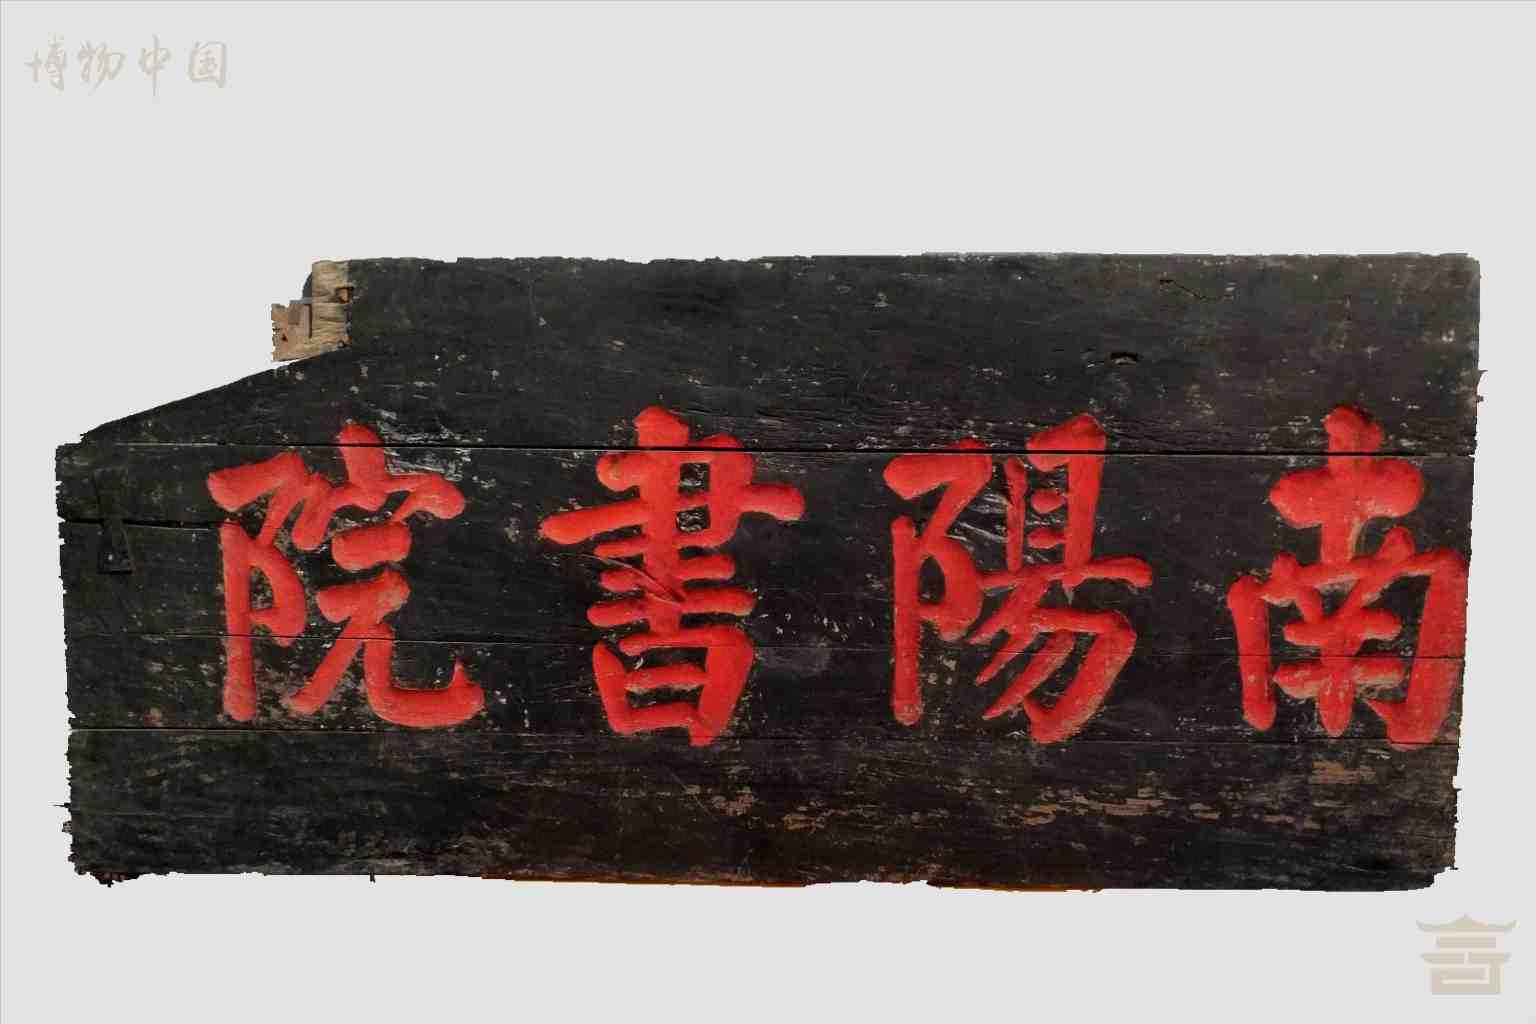 博物中国
南陽書院